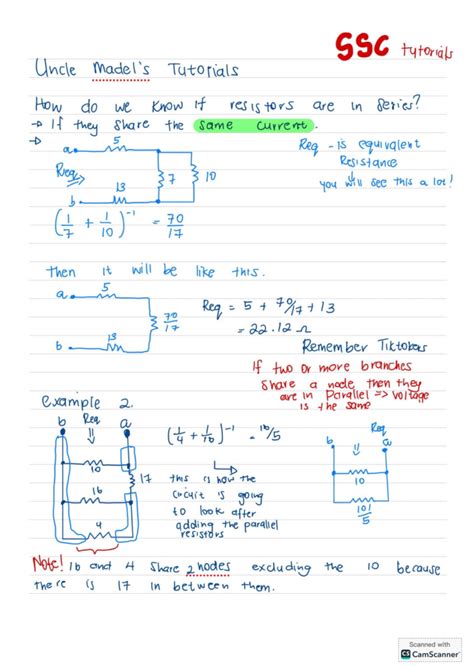 SSC tutorials
Uncle Madel's Tutorials
How do we know if resistors are in series?
→ If they share the same current.
→
a 5
Req
7 10
b 13
Req - is equivalent
Resistance
you will see this a lot!
(1/7 + 1/10)^-1 = 70/17
then it will be like this.
a 5
70/17
b 13
Req = 5 + 70/17 + 13
= 22.12 Ω
Remember Tiktokers
If two or more branches
share a node then they
are in Parallel => voltage
is the same
Example 2.
b Req a
10
17
16
4
(1/4 + 1/16)^-1 = 16/5
this is how the
circuit is going
to look after
adding the parallel
resistors
b Req a
10
101/5
Note! 16 and 4 share 2 nodes excluding the 10 because
there is 17 in between them.
Scanned with
CS CamScanner